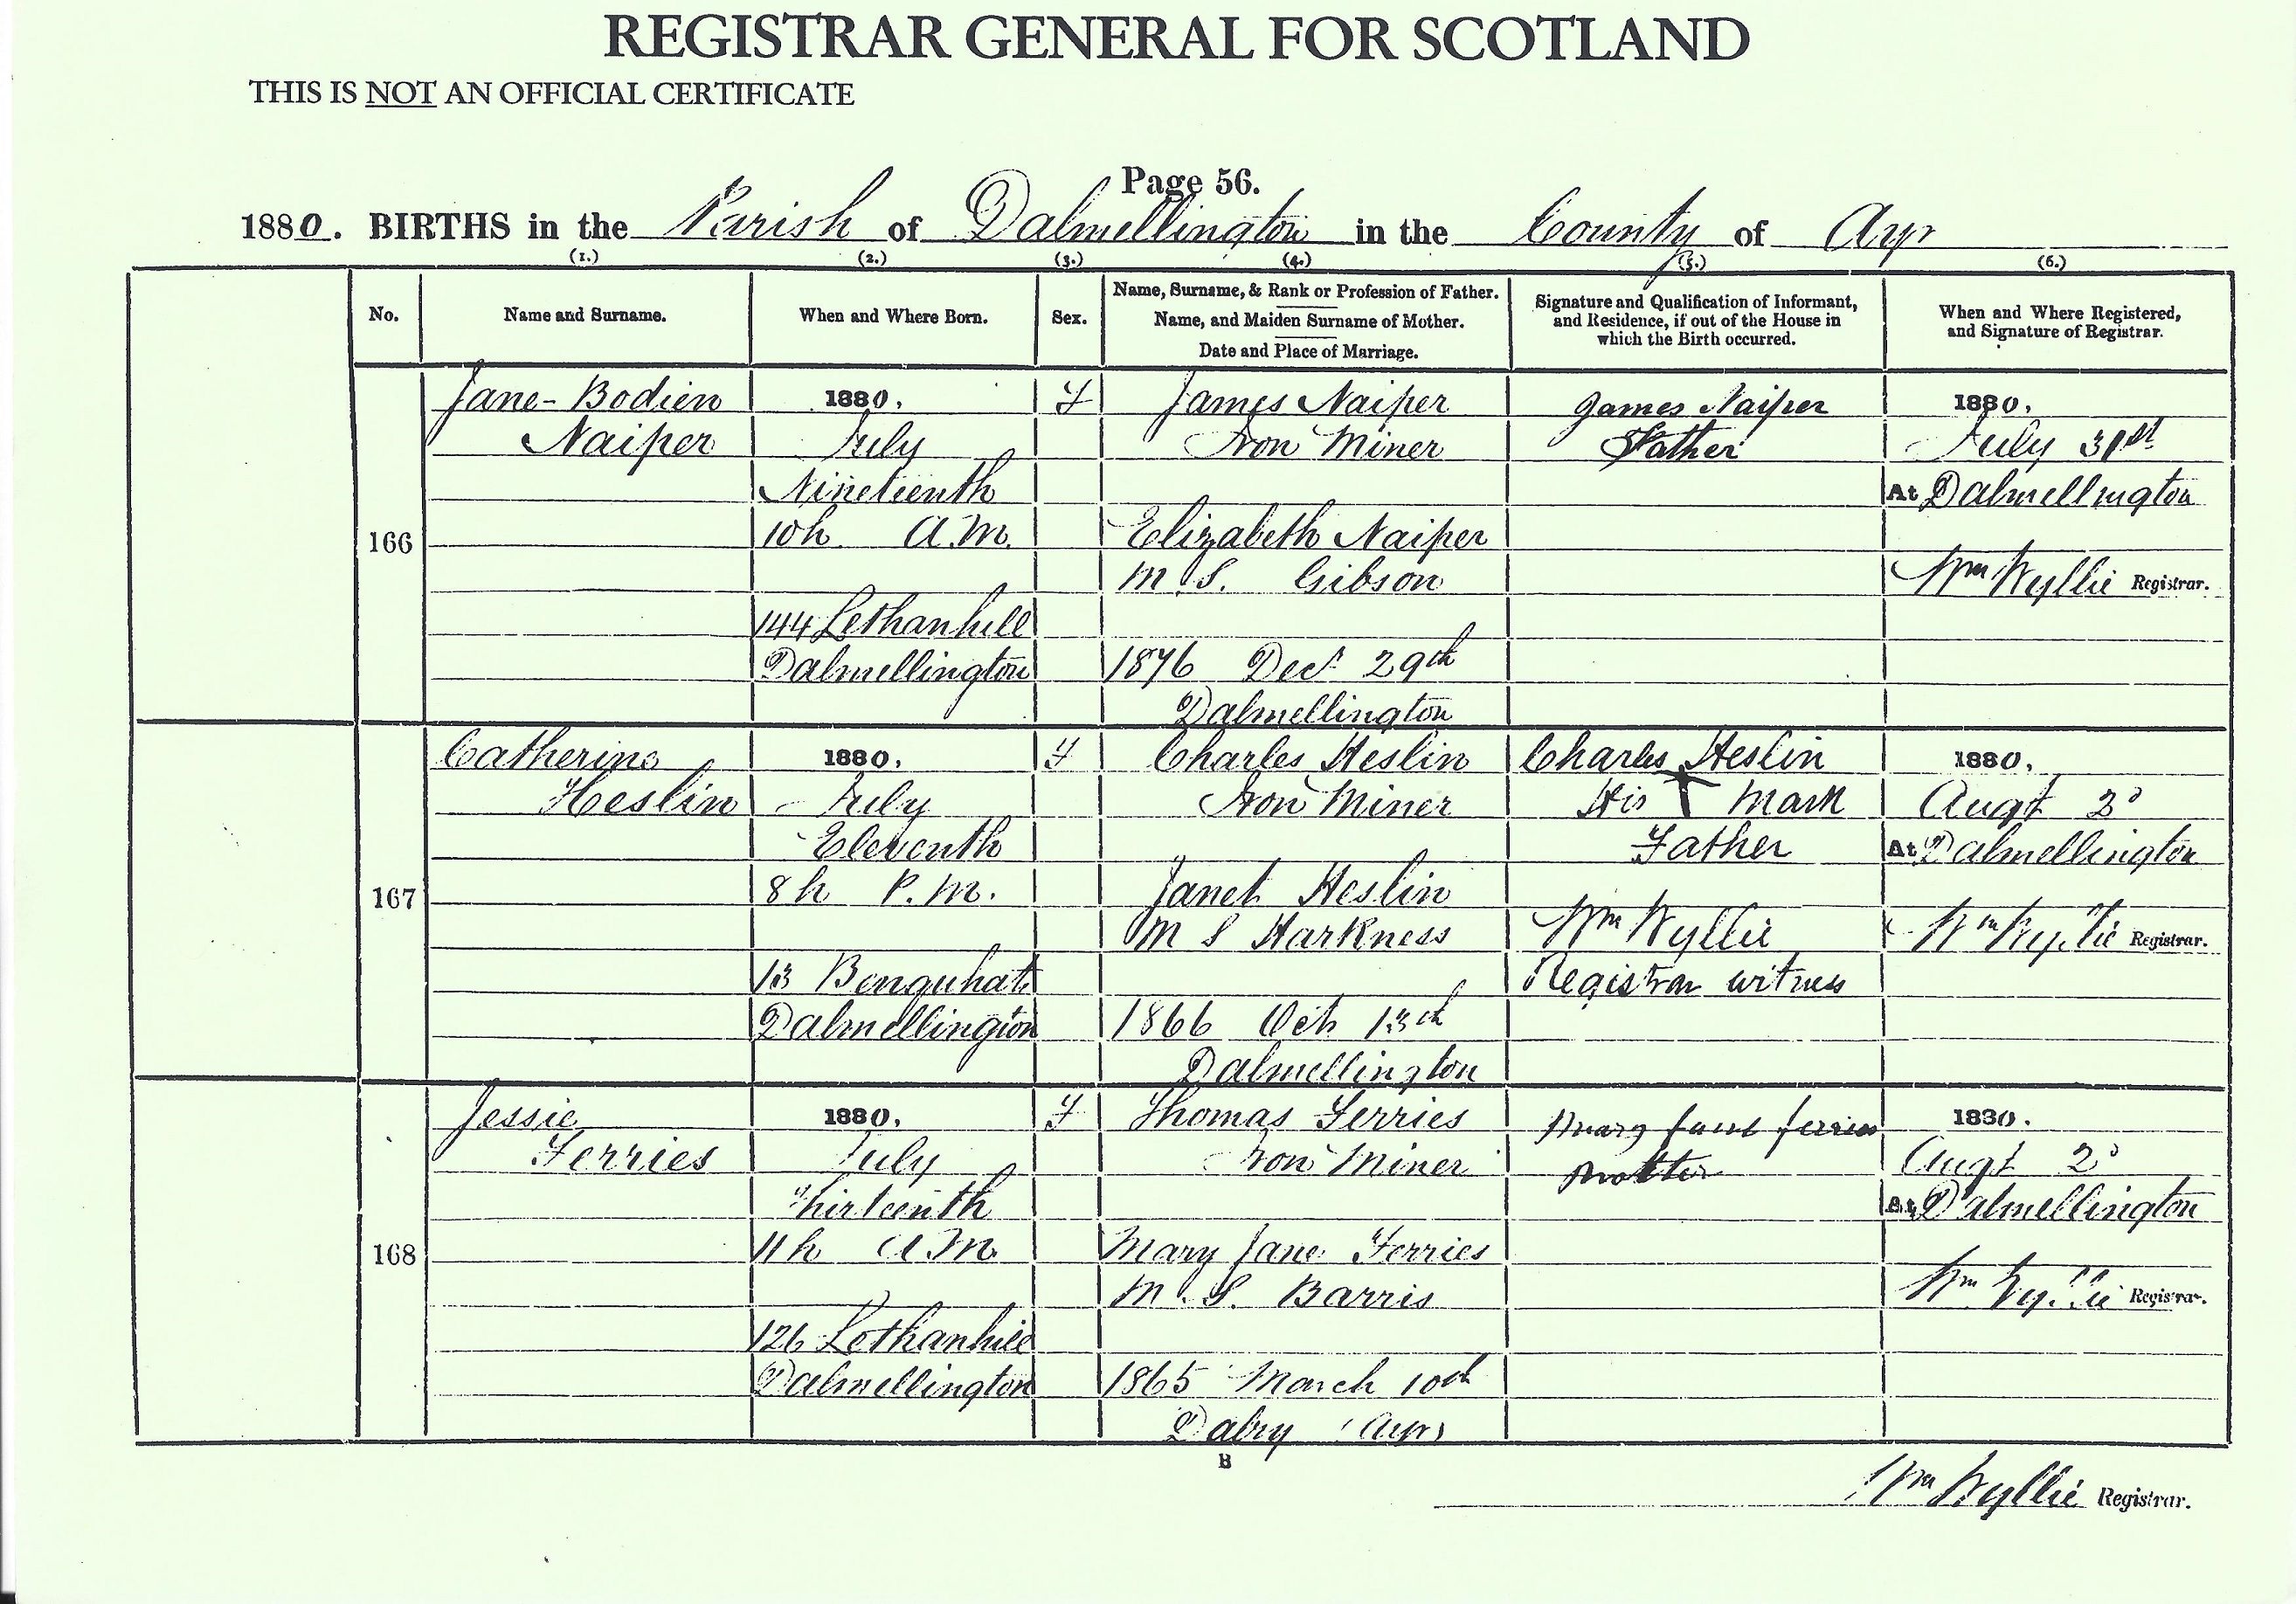 REGISTRAR GENERAL FOR SCOTLAND
THIS IS NOT AN OFFICIAL CERTIFICATE
Page 56.
1880. BIRTHS in the Parish of Dalmellington in the County of Ayr
(1.) (2.) (3.) (4.) (5.) (6.)
No.
Name and Surname.
When and Where Born.
Sex.
Name, Surname, & Rank or Profession of Father.
Name, and Maiden Surname of Mother.
Date and Place of Marriage.
Signature and Qualification of Informant,
and Residence, if out of the House in
which the Birth occurred.
When and Where Registered,
and Signature of Registrar.
166
Jane-Bodien
Naiper
1880.
July
Nineteenth
10h A.M.
144 Lethanhill
Dalmellington
F
James Naiper
Iron Miner
Elizabeth Naiper
M.S. Gibson
1876 Decr 29th
Dalmellington
James Naiper
Father
1880.
July 31st
At Dalmellington
Wm Wyllie Registrar.
167
Catherine
Heslin
1880.
July
Eleventh
8h P.M.
13 Benquhat
Dalmellington
F
Charles Heslin
Iron Miner
Janet Heslin
M S Harkness
1866 Oct 13th
Dalmellington
Charles Heslin
His X Mark
Father
Wm Wyllie
Registrar witness
1880.
Augt 2d
At Dalmellington
Wm Wyllie Registrar.
168
Jessie
Ferries
1880.
July
Thirteenth
11h A.M.
126 Lethanhill
Dalmellington
F
Thomas Ferries
Iron Miner
Mary Jane Ferries
M.S. Barris
1865 March 10th
Dalry (Ayr)
Mary Jane ferries
Mother
1880.
Augt 2d
At Dalmellington
Wm Wyllie Registrar.
B
Wm Wyllie Registrar.